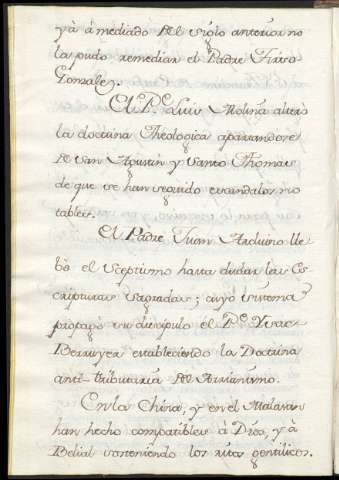 yà à mediado del siglo anterior no
la pudo remediar el Padre Tirso
Gonzalez.
El Pe. Luis Molina alterò
la doctrina Theologica apartandose
de San Agustin y Santo Thomas
de que se han seguido escandalos no
tables.
El Padre Juan Arduino lle
bò el sceptismo hasta dudar las Es-
cripturas Sagradas; cuyo sistema
propagò su discipulo el Pe. Ysac
Berruyer estableciendo la Doctrina
anti-tributaria del Arrianismo.
En la China, y en el Malavar
han hecho compatibles à Dios, y à
Belial sosteniendo los ritos gentilicos.